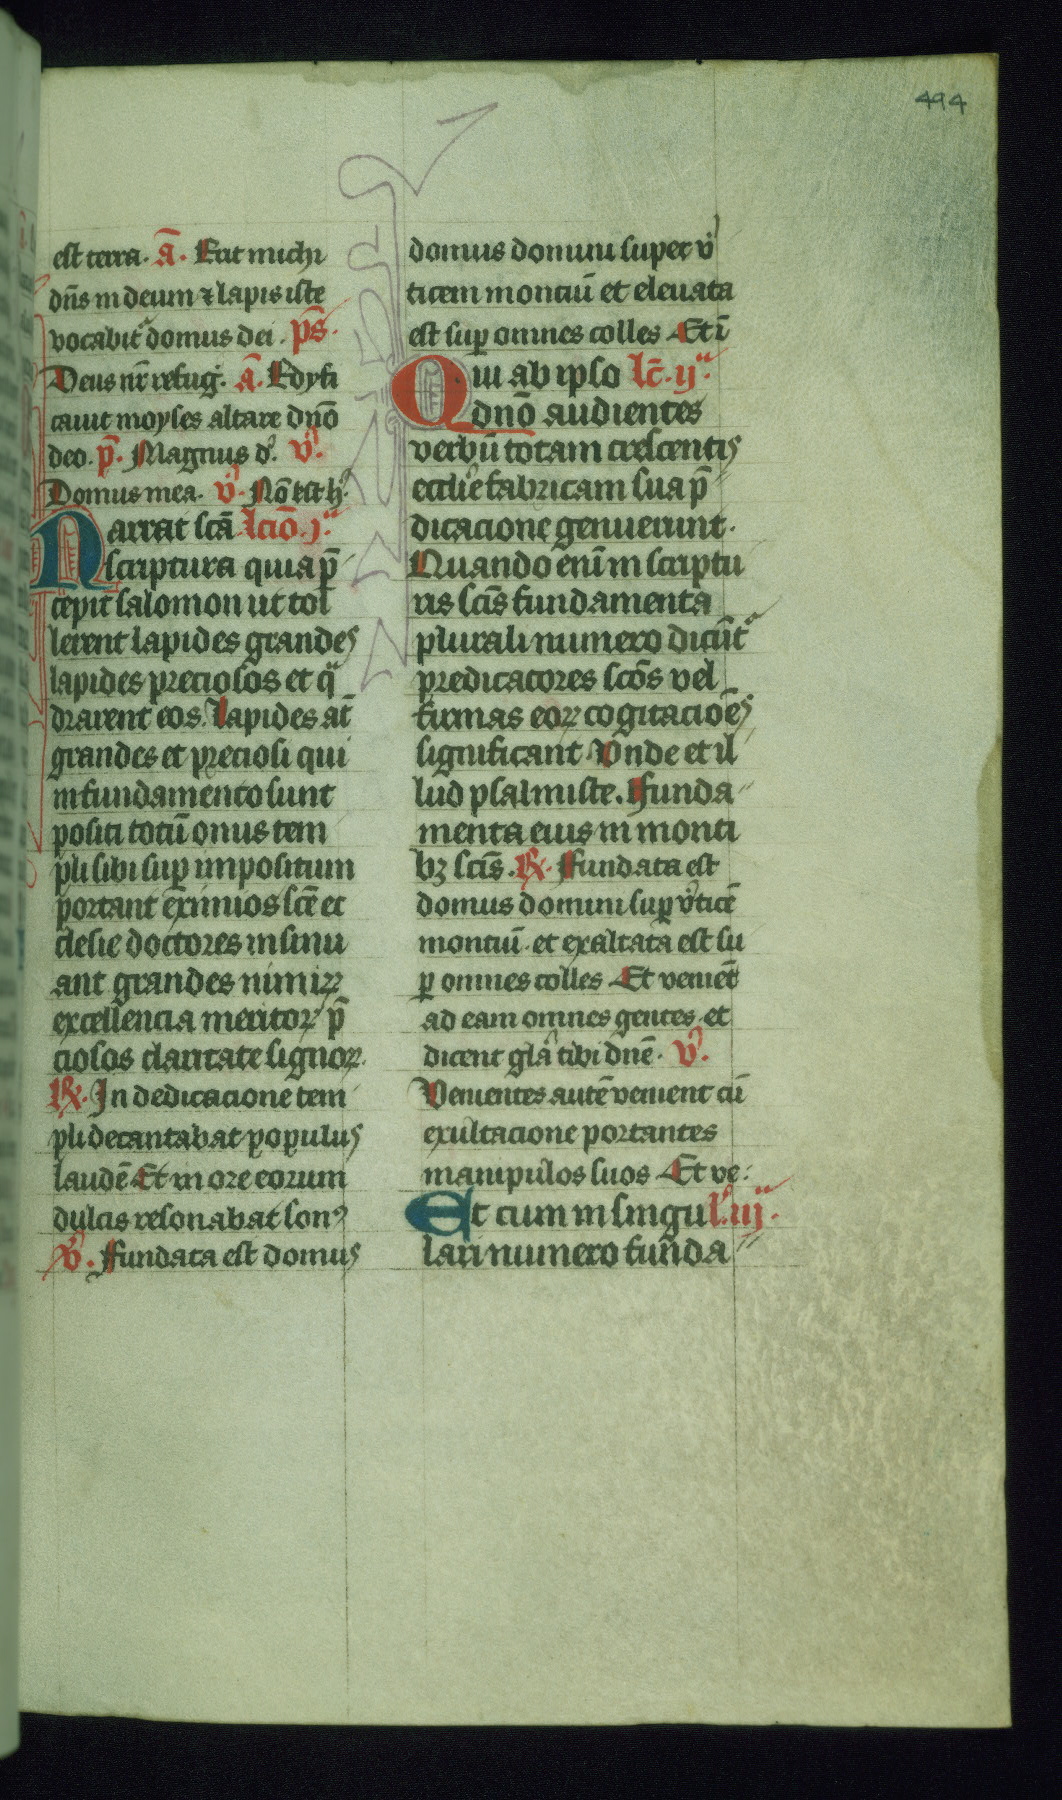 494
est terra. a̅. Erit michi
dn̅s in deum ⁊ lapis iste
vocabit᷑ domus dei. ps̅.
Deus nr̅ refug̅. a̅. Edyfi
cauit moyses altare dn̅o
deo. p̅. Magnus d̾. v̾.
Domus mea. v̾. No̅ est h̾.
Narrat sc̅a lc̅io. j.ᵃ
scriptura quia p̅
cepit salomon ut tol
lerent lapides grandes
lapides preciosos et qᵃ
drarent eos. Lapides at̅
grandes et preciosi qui
in fundamento sunt
positi totu̅ onus tem
pli sibi suꝑ impositum
portant eximios sc̅e ec
clesie doctores insinu
ant grandes nimiꝝ
excellencia meritoꝝ p̅
ciosos claritate signoꝝ.
℟. In dedicacione tem
pli decantabat populus
laude̅ Et in ore eorum
dulcis resonabat sonꝰ
v̾. Fundata est domus
domus domini super v̾
ticem montiu̅ et eleuata
est suꝑ omnes colles Et i̅
Qui ab ipso lc̅. ij.ᵃ
dn̅o audientes
verbu̅ totam crescentis
eccl̅ie fabricam sua p̅
dicacione genuerunt.
Quando eni̅ in scriptu
ris sc̅is fundamenta
plurali numero dicu̅t᷑
predicatores sc̅os vel
firmas eoꝝ cogitacio̅es
significant Vnde et il
lud psalmiste. Funda
menta eius in monti
bꝫ sc̅is. ℟. Fundata est
domus domini suꝑ v̾tice̅
montiu̅. et exaltata est su
ꝑ omnes colles Et venie̅t
ad eam omnes gentes. et
dicent gl̅a tibi dn̅e. v̾.
Venientes aute̅ venient cu̅
exultacione portantes
manipulos suos Et ve.
Et cum in singu l̾. iij.ᵃ
lari numero funda